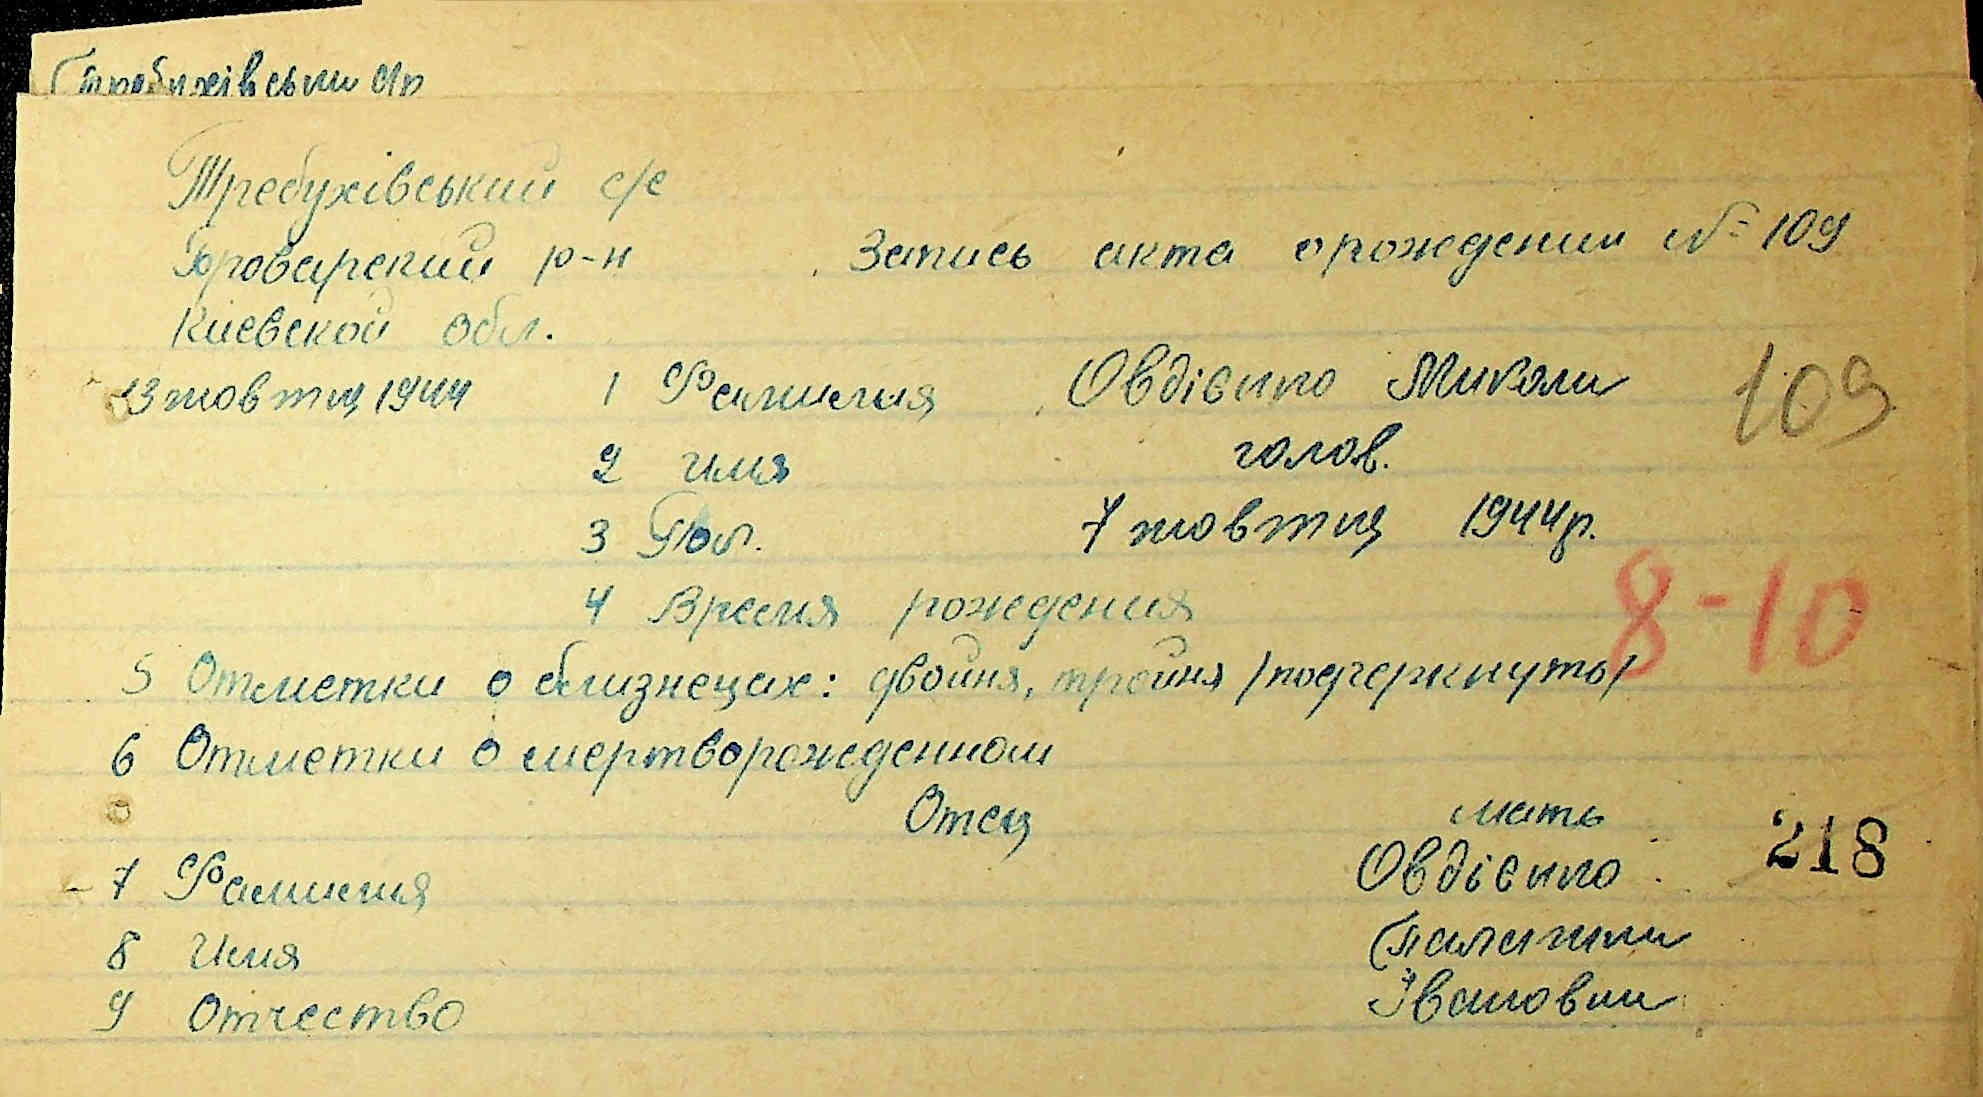 Требухівський с/р
Требухівський с/с
Броварский р-н Запись акта о рождении № 109
Киевской обл.
13 жовтня 1944 1 Фамилия Овдієнко Миколи 109
2 Имя голов.
3 Пол. 7 жовтня 1944р.
4 Время рождения 8-10
5 Отметки о близнецах: двойня, тройня /подчеркнуть/
6 Отметки о мертворожденном
Отец мать 218
7 Фамилия Овдієнко
8 Имя
9 Отчество Івановни